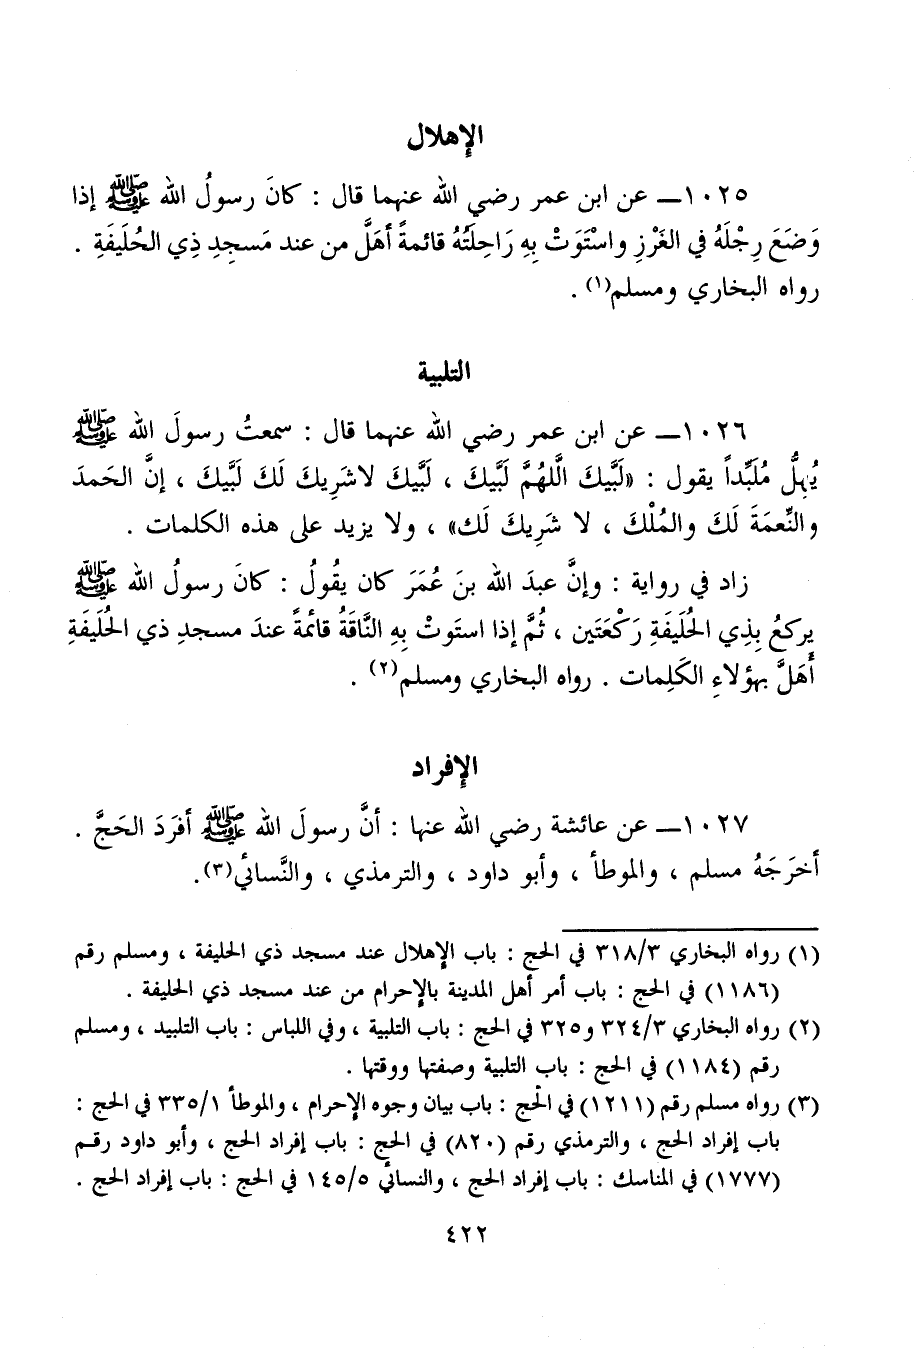 الإهلال
١٠٢٥ــ عن ابن عمر رضي الله عنهما قال : كانَ رسولُ الله ﷺ إذا
وَضَعَ رِجْلَهُ في الغَرْزِ واسْتَوَتْ بِهِ رَاحِلَتُهُ قائمةً أهَلَّ من عند مَسجِدِ ذِي الحُلَيفَةِ .
رواه البخاري ومسلم(١) .
التلبية
١٠٢٦ــ عن ابن عمر رضي الله عنهما قال : سمعتُ رسولَ الله ﷺ
يُهِلُّ مُلَبِّداً يقول : «لَبَّيكَ الَّلهُمَّ لَبَّيكَ ، لَبَّيكَ لاشَرِيكَ لَكَ لَبَّيكَ ، إنَّ الحَمدَ
والنِّعمَةَ لَكَ والمُلْكَ ، لا شَرِيكَ لَك» ، ولا يزيد على هذه الكلمات .
زاد في رواية : وإنَّ عبدَ الله بنَ عُمَرَ كان يقُولُ : كانَ رسولُ الله ﷺ
يركعُ بِذِي الحُلَيفَةِ رَكْعَتَين ، ثُمَّ إذا استَوتْ بِهِ النَّاقَةُ قائمةً عندَ مسجدِ ذي الحُلَيفَةِ
أَهَلَّ بهؤلاءِ الكَلِمات . رواه البخاري ومسلم(٢) .
الإفراد
١٠٢٧ــ عن عائشة رضي الله عنها : أنَّ رسولَ الله ﷺ أفرَدَ الحَجَّ .
أخرَجَهُ مسلم ، والموطأ ، وأبو داود ، والترمذي ، والنَّسائي(٣).
(١) رواه البخاري ٣١٨/٣ في الحج : باب الإهلال عند مسجد ذي الحليفة ، ومسلم رقم
(١١٨٦) في الحج : باب أمر أهل المدينة بالإحرام من عند مسجد ذي الحليفة .
(٢) رواه البخاري ٣٢٤/٣ و٣٢٥ في الحج : باب التلبية ، وفي اللباس : باب التلبيد ، ومسلم
رقم (١١٨٤) في الحج : باب التلبية وصفتها ووقتها .
(٣) رواه مسلم رقم (١٢١١) في الحج : باب بيان وجوه الإحرام ، والموطأ ٣٣٥/١ في الحج :
باب إفراد الحج ، والترمذي رقم (٨٢٠) في الحج : باب إفراد الحج ، وأبو داود رقم
(١٧٧٧) في المناسك : باب إفراد الحج ، والنسائي ١٤٥/٥ في الحج : باب إفراد الحج .
٤٢٢